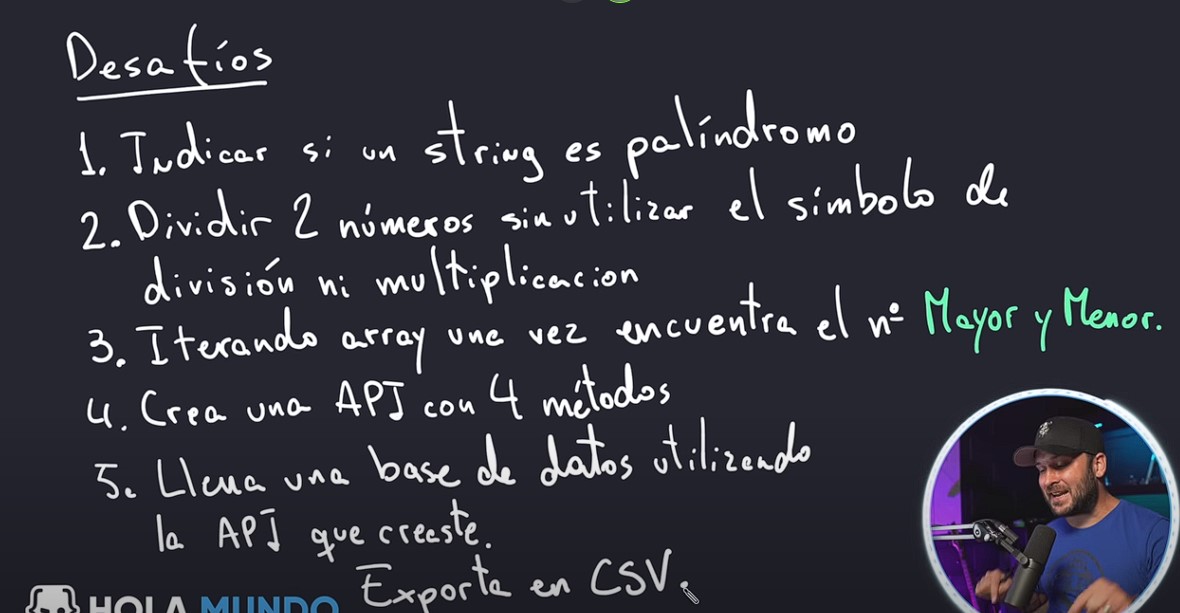 Desafíos
1. Indicar si un string es palíndromo
2. Dividir 2 números sin utilizar el símbolo de
división ni multiplicacion
3. Iterando array una vez encuentra el nº Mayor y Menor.
4. Crea una API con 4 métodos
5. Llena una base de datos utilizando
la API que creaste.
Exporta en CSV.
HOLA MUNDO